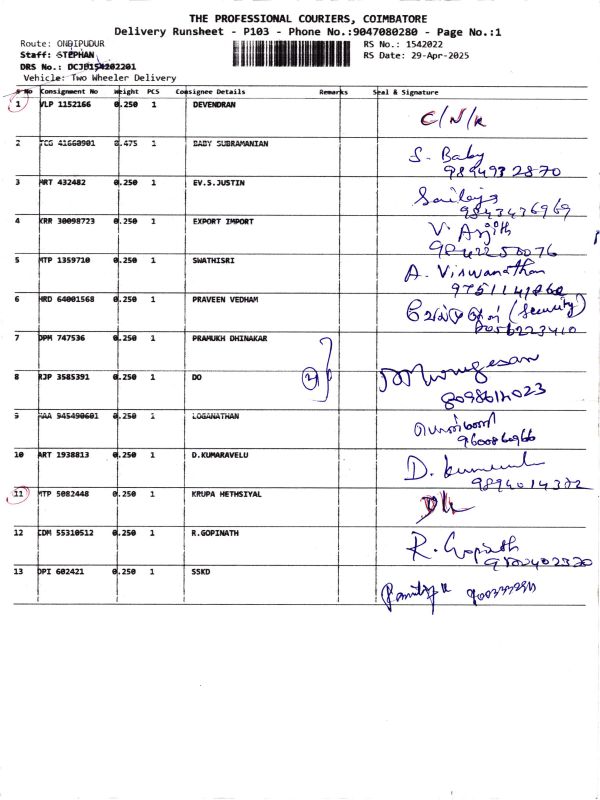 THE PROFESSIONAL COURIERS, COIMBATORE
Delivery Runsheet - P103 - Phone No.:9047080280 - Page No.:1
Route: ONDIPUDUR
RS No.: 1542022
Staff: STEPHAN
RS Date: 29-Apr-2025
DRS No.: DCJB154202201
Vehicle: Two Wheeler Delivery
# No Consignment No Weight PCS Consignee Details Remarks Seal & Signature
1 VLP 1152166 0.250 1 DEVENDRAN
C/N/R
2 TCG 41660901 0.475 1 BABY SUBRAMANIAN
S. Baby
9894932870
3 MRT 432482 0.250 1 EV.S.JUSTIN
9843436969
4 KRR 30098723 0.250 1 EXPORT IMPORT
V. Arjith
9842250076
5 MTP 1359710 0.250 1 SWATHISRI
A. Viswanathan
6 MRD 64001568 0.250 1 PRAVEEN VEDHAM
(Security)
7 DPM 747536 0.250 1 PRAMUKH DHINAKAR
8 RJP 3585391 0.250 1 DO
Murugesan
9 MAA 945490601 0.250 1 LOGANATHAN
9600860966
10 ART 1938813 0.250 1 D.KUMARAVELU
D.
9894014382
11 MTP 5082448 0.250 1 KRUPA HETHSIYAL
12 CDM 55310512 0.250 1 R.GOPINATH
R. Gopinath
13 DPI 602421 0.250 1 SSKD